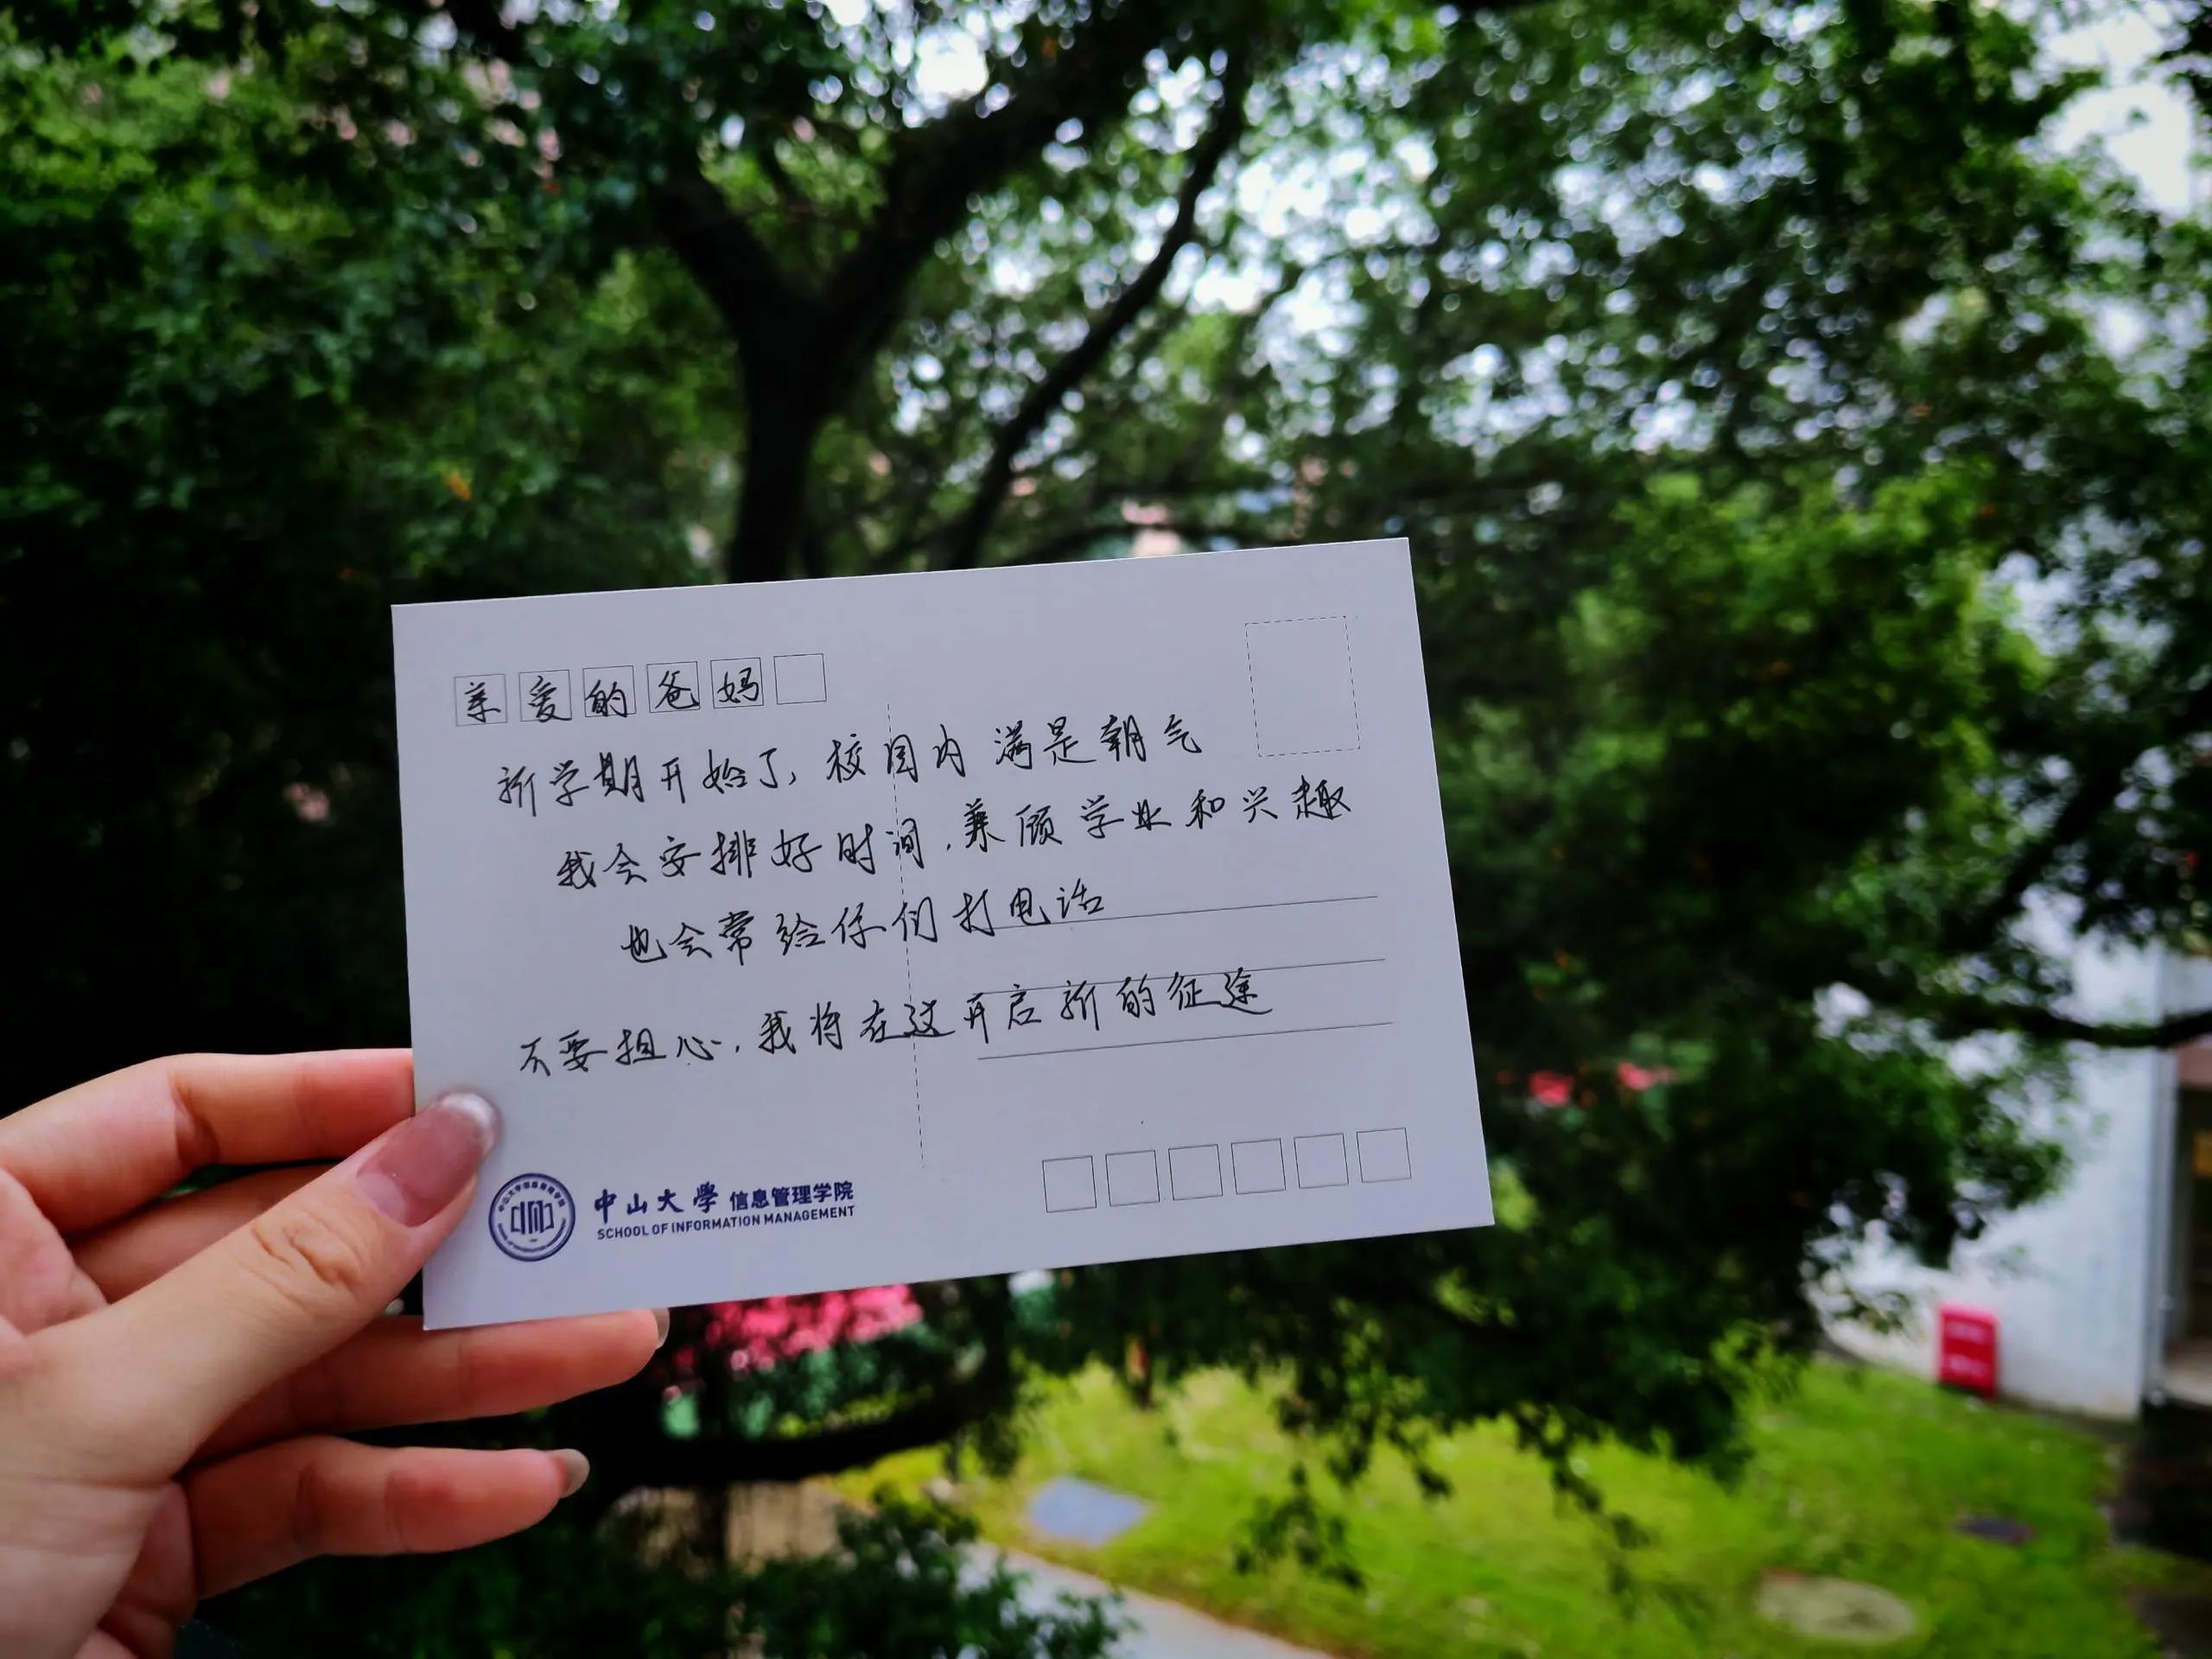 亲爱的爸妈
新学期开始了，校园内满是朝气
我会安排好时间，兼顾学业和兴趣
也会常给你们打电话
不要担心，我将在这开启新的征途
中山大學 信息管理学院
SCHOOL OF INFORMATION MANAGEMENT